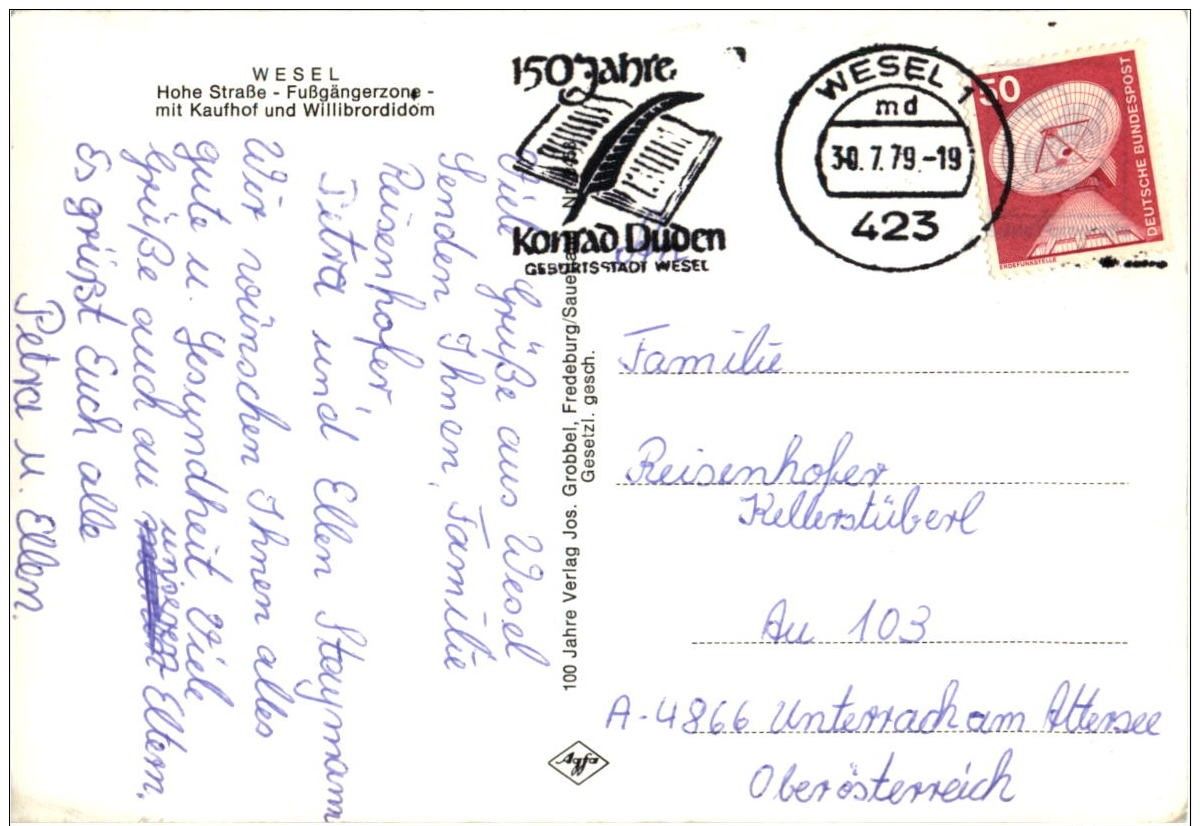 WESEL
Hohe Straße - Fußgängerzone -
mit Kaufhof und Willibrordidom
150 Jahre
Konrad Duden
GEBURTSSTADT WESEL
WESEL 1
md
30.7.79.-19
423
50
DEUTSCHE BUNDESPOST
ERDEFUNKSTELLE
Viele Grüße aus Wesel
Senden Ihnen, Familie
Reisenhofer,
Petra und Ellen Staymann
Wir wünschen Ihnen alles
gute u. Gesundheit. Viele
Grüße auch an unseren Eltern.
Es grüßt Euch alle
Petra u. Ellen.
100 Jahre Verlag Jos. Grobbel, Fredeburg/Sauerland
Gesetzl. gesch.
Agfa
An
Familie
Reisenhofer
Kellerstüberl
Au 103
A-4866 Unterrach am Attersee
Oberösterreich